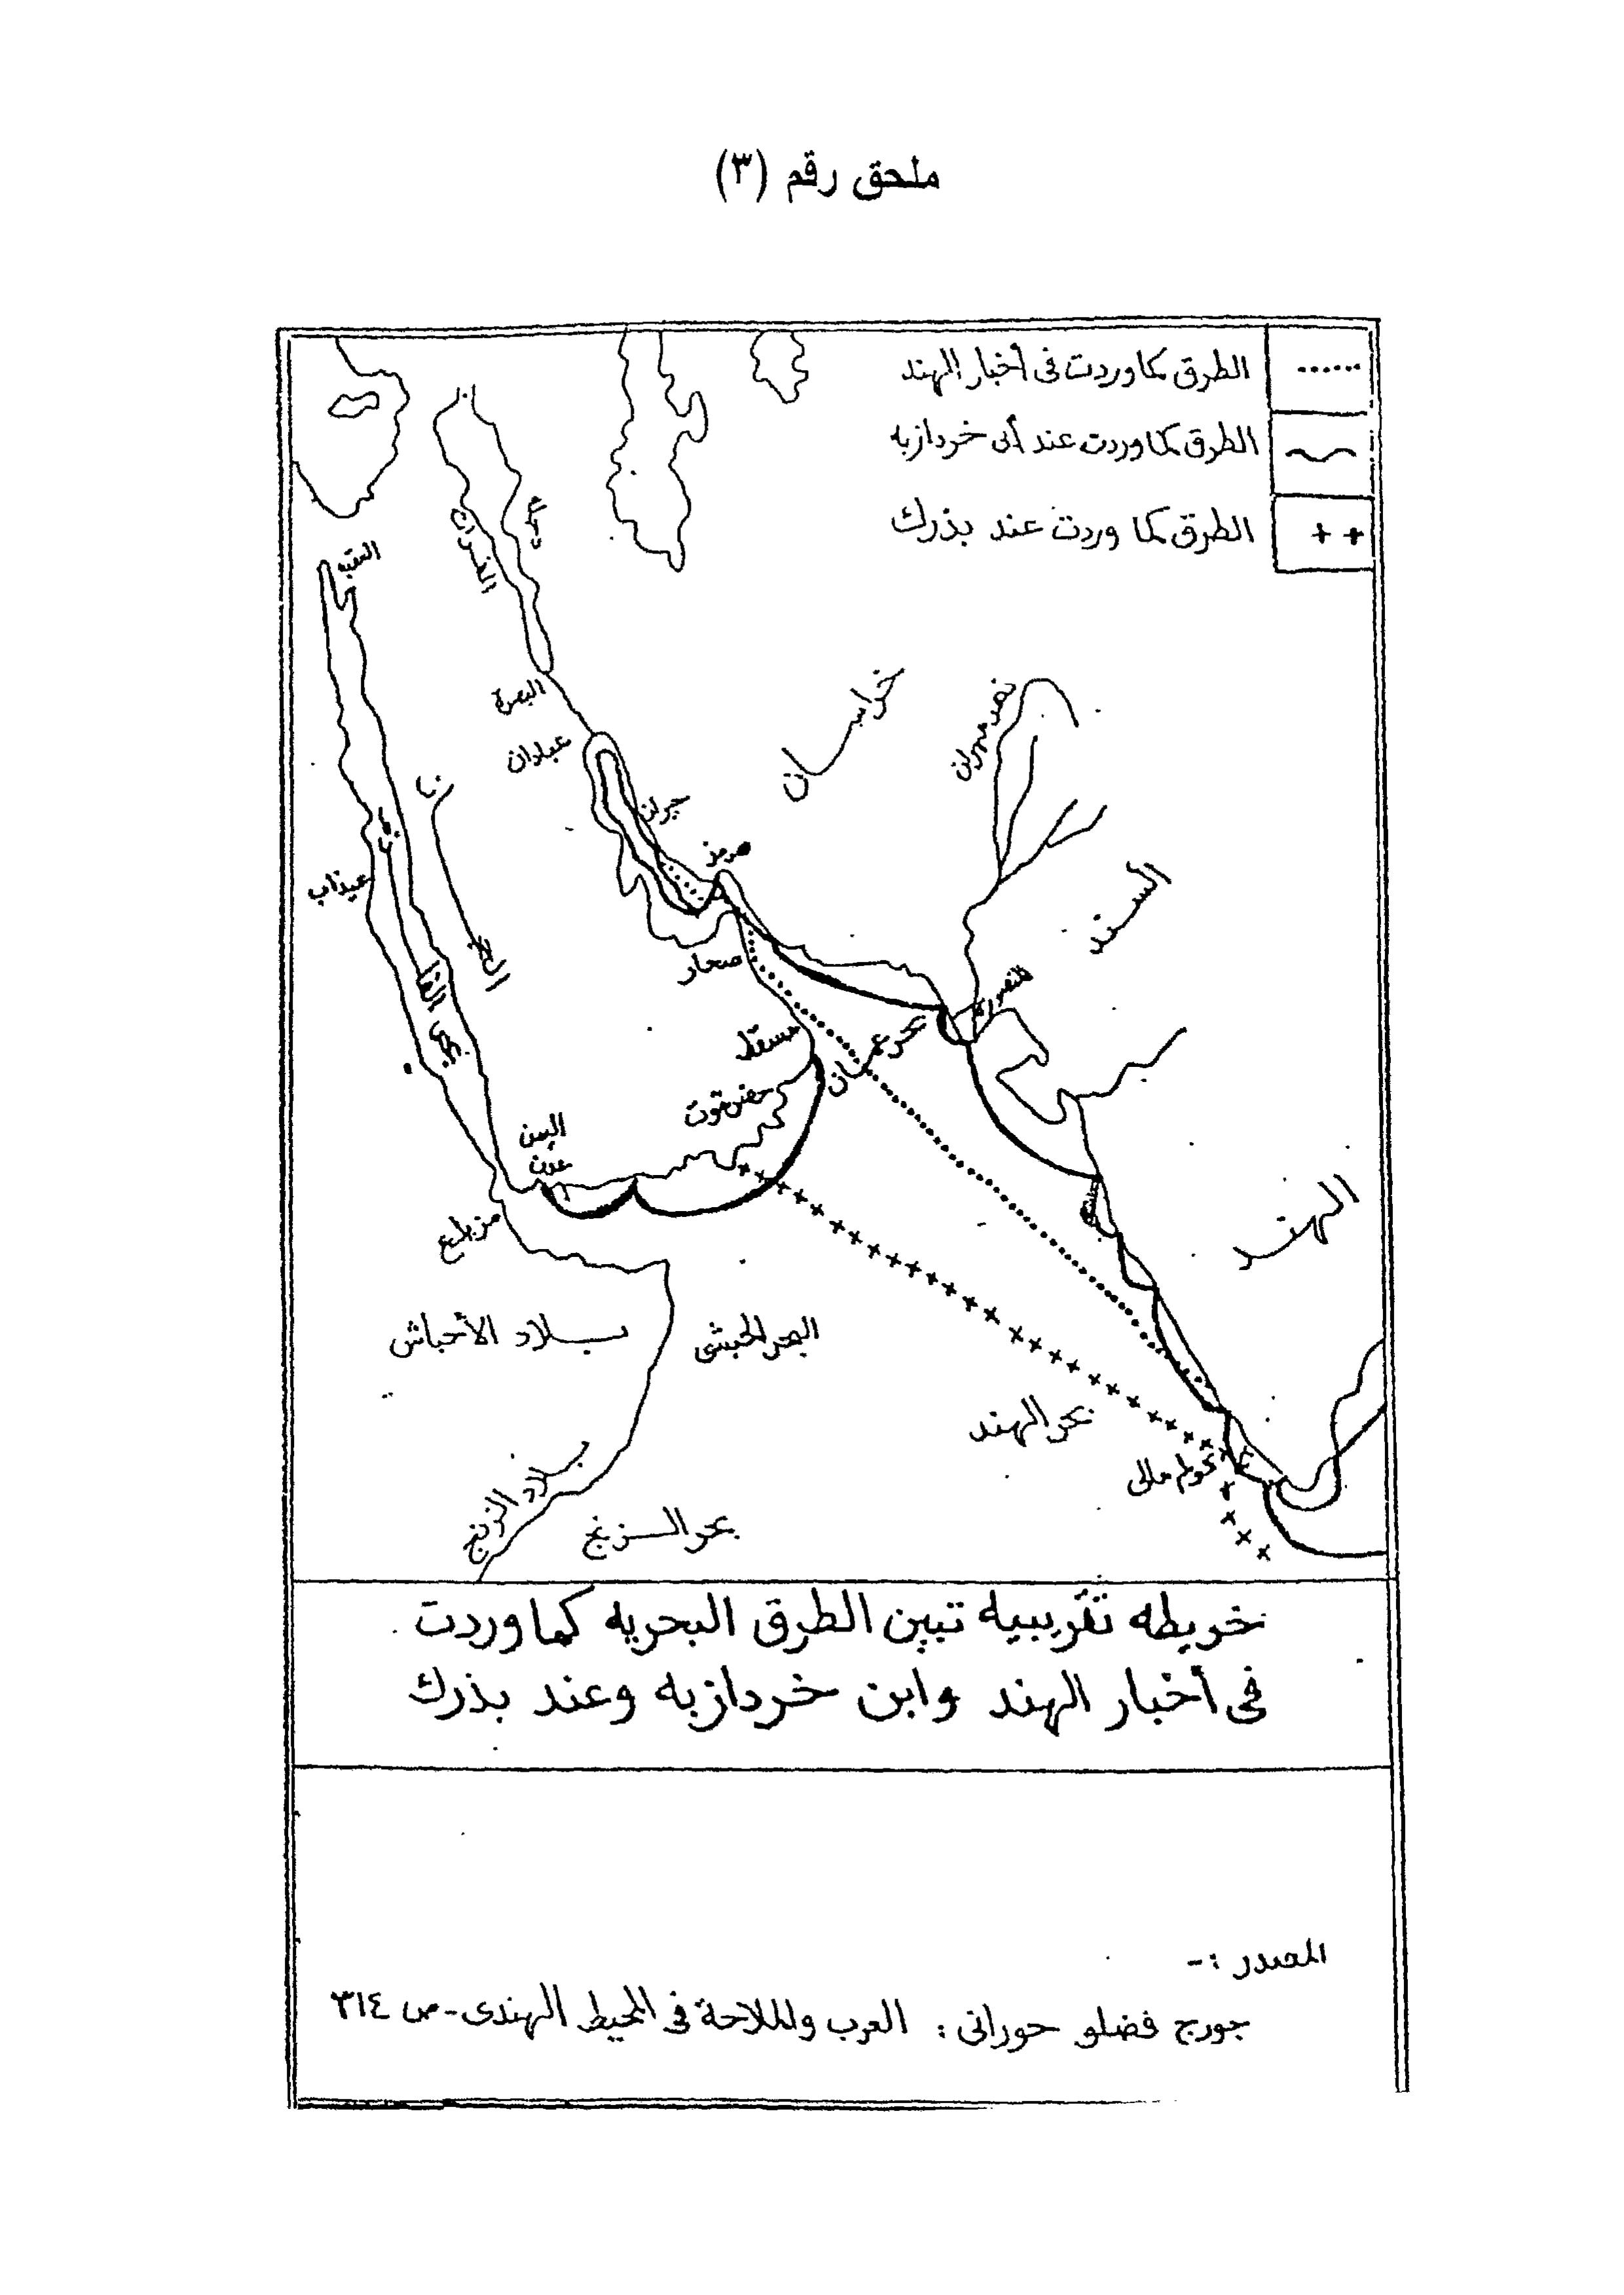 ملحق رقم (٣)
الطرق كما وردت فى أخبار الهند
الطرق كما وردت عند أبى خردازبه
الطرق كما وردت عند بذرك
الفرات
البصرة
عبادان
خراسان
نهر مهران
هرمز
السند
عيذاب
صحار
المنصورة
مسقط
بحر عمان
حضرموت
اليمن
عدن
الهند
بلاد الأحباش
البحر الحبشى
بحر الهند
كولم مالى
بلاد الزنج
بحر الزنج
خريطه تقريبيه تبين الطرق البحريه كما وردت
فى أخبار الهند وابن خردازبه وعند بذرك
المصدر :-
جورج فضلو حورانى : العرب والملاحة فى المحيط الهندى - ص ٣١٤